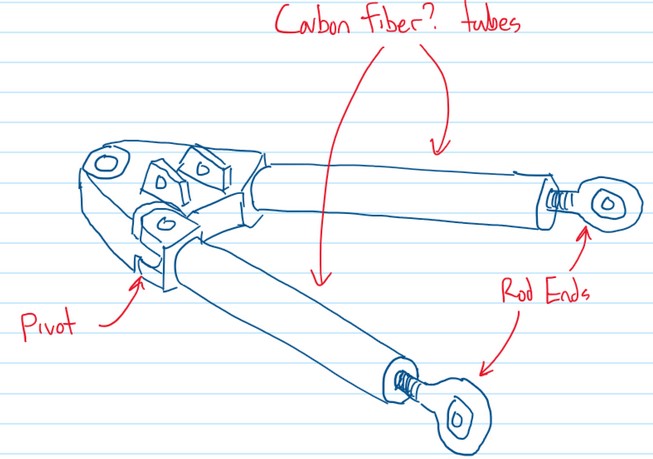 Carbon Fiber? tubes
Rod Ends
Pivot